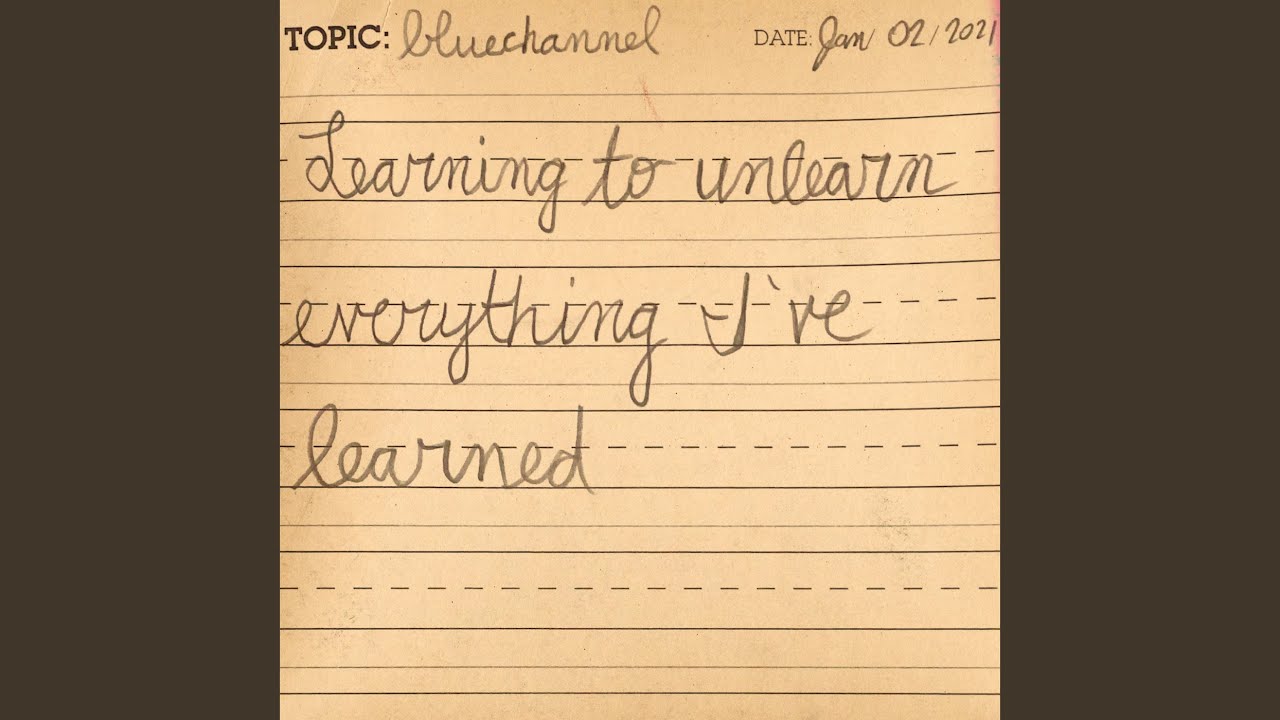 TOPIC: bluechannel DATE: Jan 02/2021
Learning to unlearn
everything I've
learned